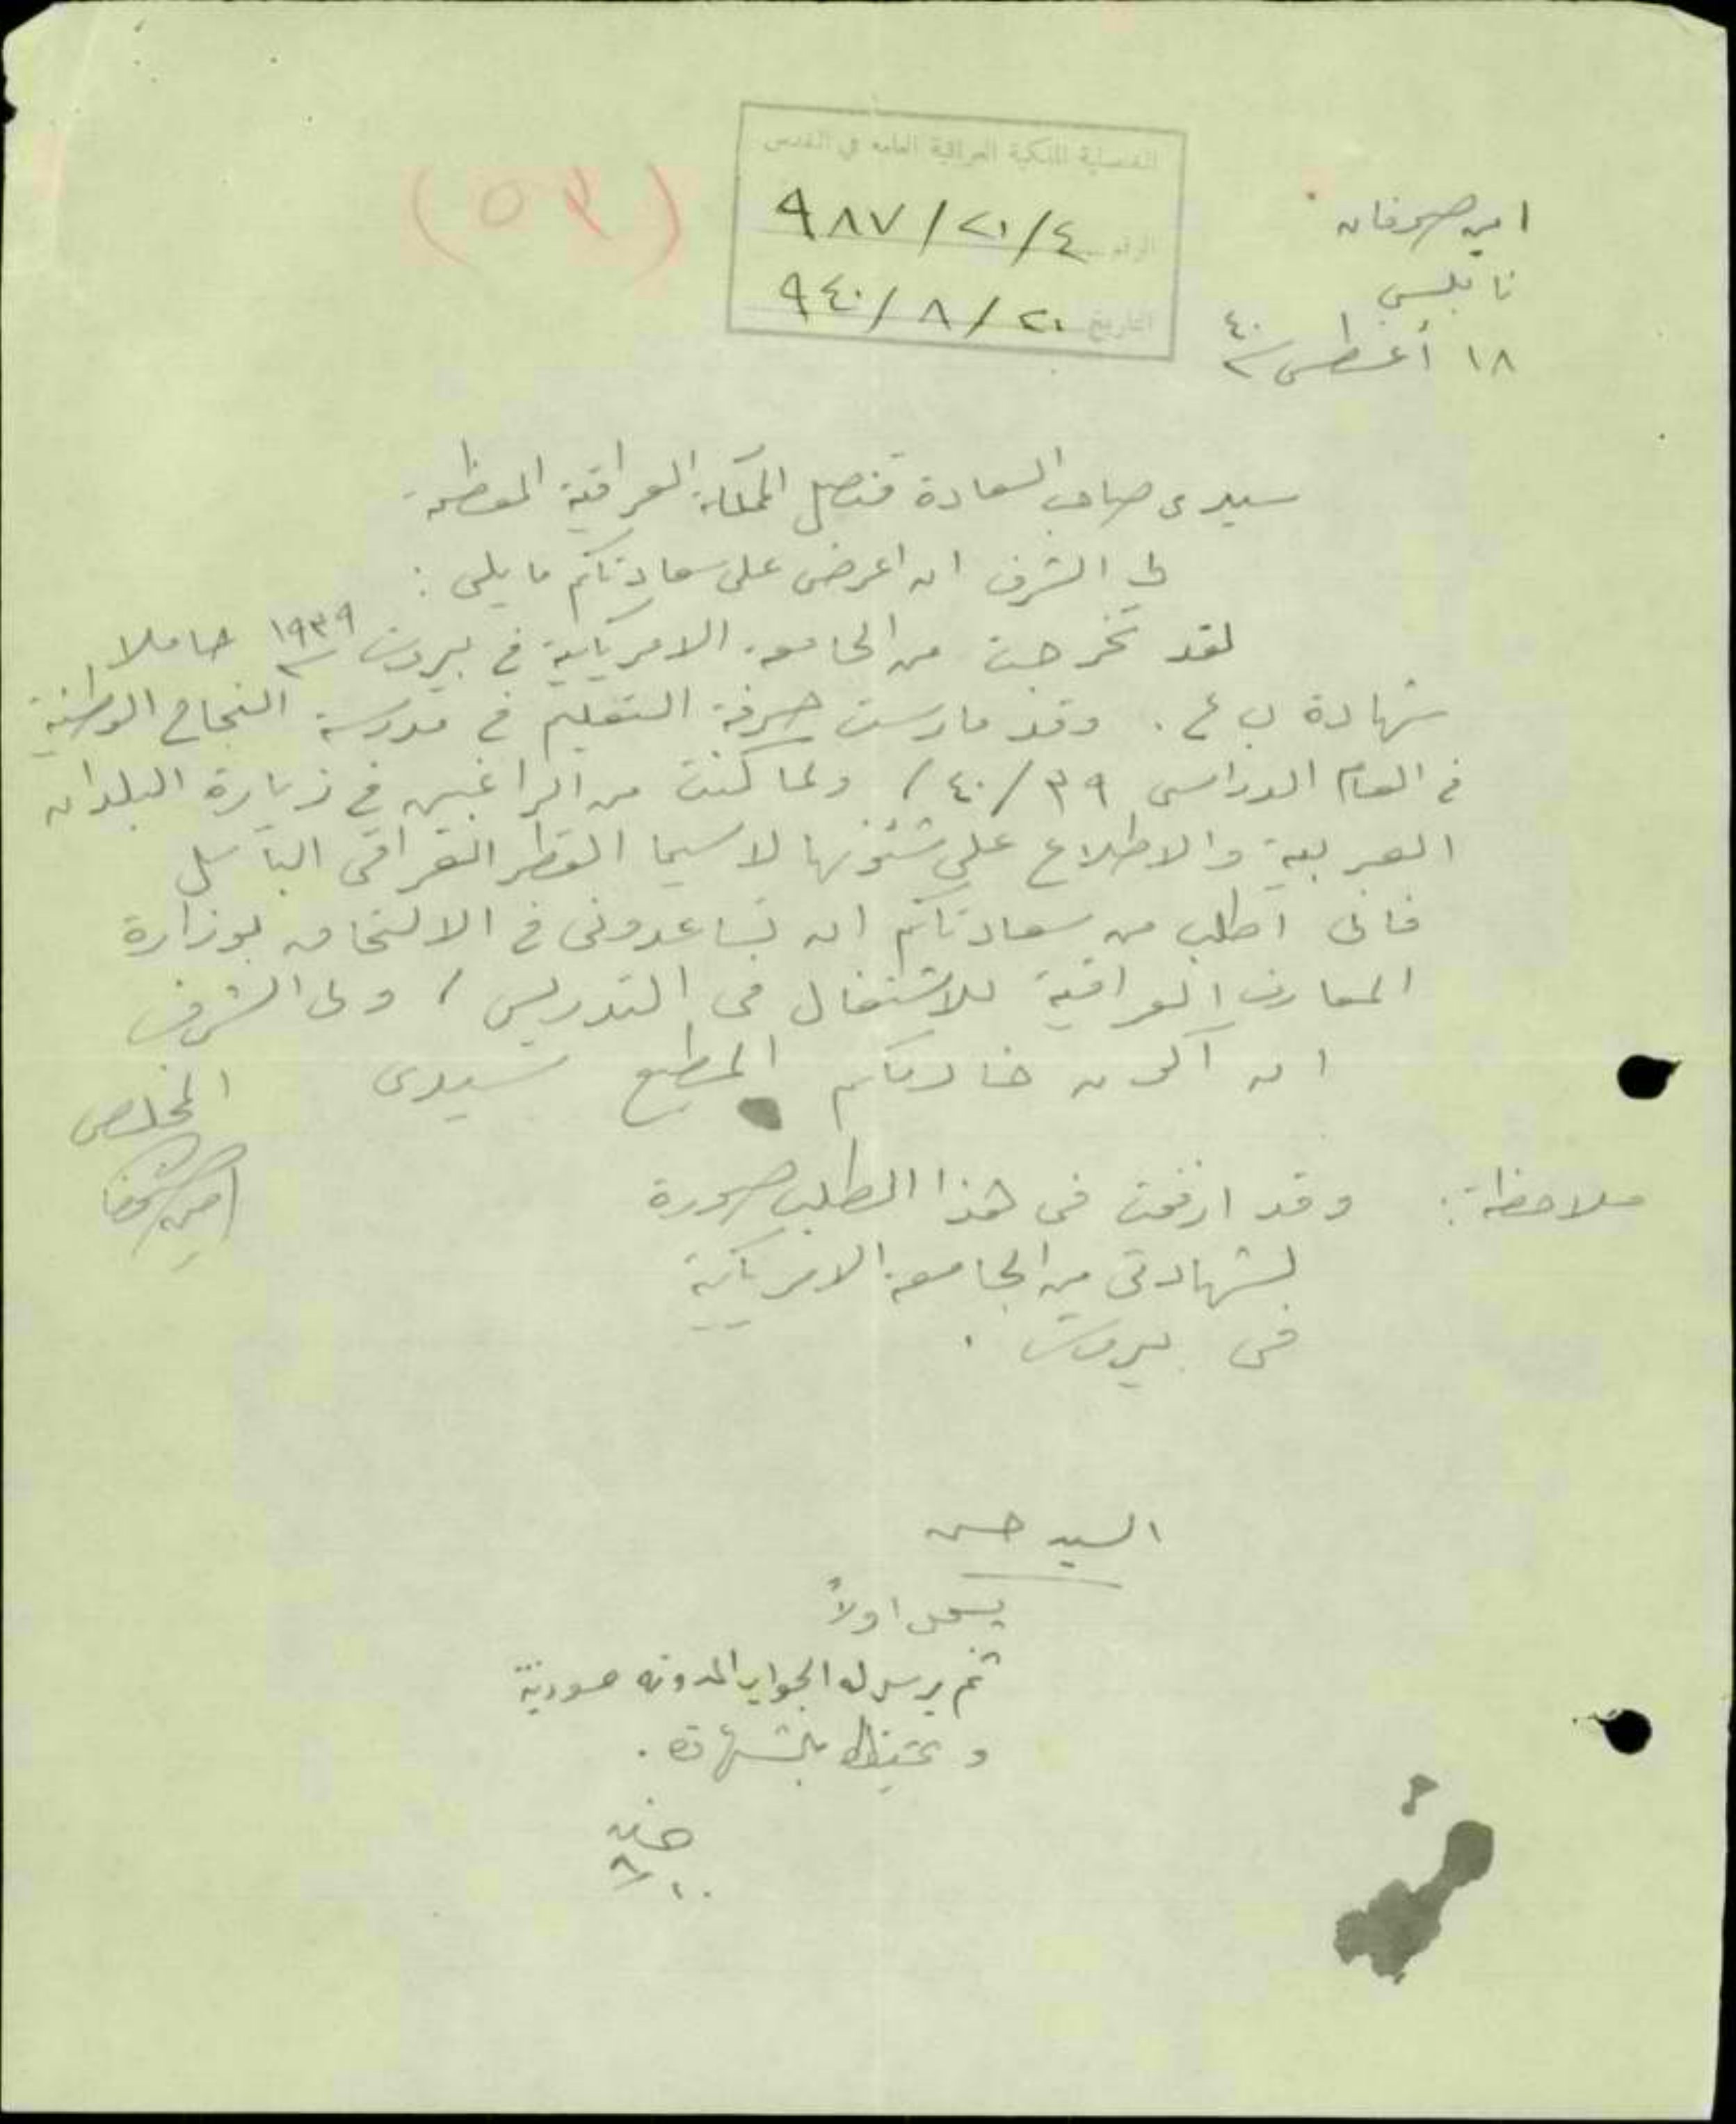 القنصلية الملكية العراقية العامة في القدس
الرقم ٩٨٧/٢١/٤
التاريخ ٩٤٠/٨/٢٠
(٥٣)
امين صوفان
نابلس
١٨ أغسطس ٤٠
سيدى صاحب السعادة قنصل المملكة العراقية المعظمة
لي الشرف ان اعرض على سعادتكم ما يلى :
لقد تخرجت من الجامعة الامريكية في بيروت ١٩٣٩ حاملا
شهادة ب ع . وقد مارست حرفة التعليم في مدرسة النجاح الوطنية
في العام الدراسى ٤٠/٣٩ / ولما كنت من الراغبين في زيارة البلدان
العربية والاطلاع على شئونها لا سيما القطر العراقى الباسل
فانى اطلب من سعادتكم ان تساعدونى في الالتحاق بوزارة
المعارف العراقية للاشتغال فى التدريس / ولى الشرف
ان أكون خادمكم المطيع سيدى
المخلص
امين صوفان
ملاحظة : وقد ارفقت فى هذا الطلب صورة
لشهادتى من الجامعة الامريكية
فى بيروت .
السيد حسن
يسجل اولاً
ثم يرسل له الجواب المدونه صورته
و بالشهادة .